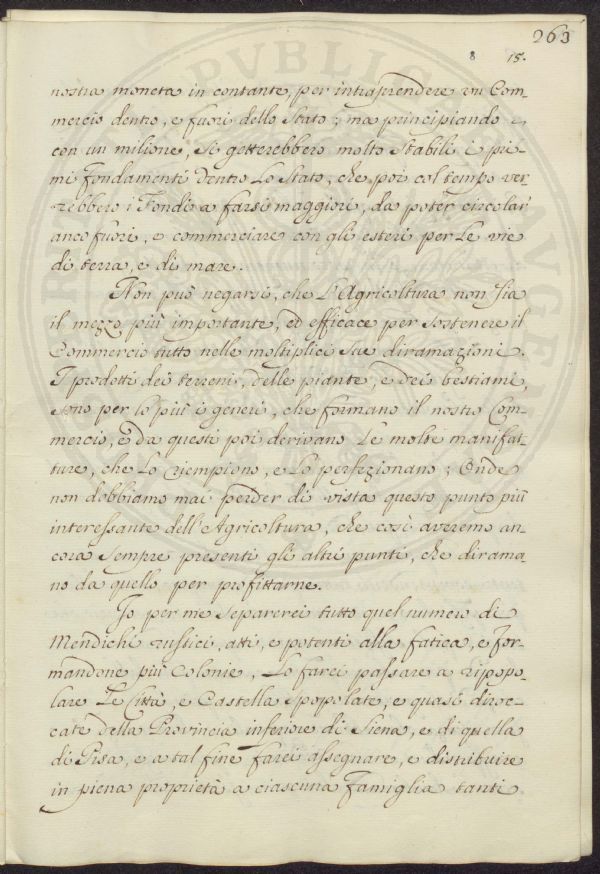 263
8 15.
nostra moneta in contante, per intraprendere un Com-
mercio dentro, e fuori dello Stato; ma principiando
con un milione, si getterebbero molto stabili i pri-
mi fondamenti dentro Lo Stato, che poi col tempo ver-
rebbero i Fondi a farsi maggiori, da poter circolar
anco fuori, e commerciare con gli esteri per Le vie
di terra, e di mare.
Non può negarsi, che L'Agricoltura non sia
il mezzo più importante, ed efficace per sostenere il
Commercio tutto nelle moltiplici sue diramazioni.
I prodotti dei terreni, delle piante, e dei bestiami,
sono per lo più i generi, che formano il nostro Com-
mercio, e da questi poi derivano Le molte manifat-
ture, che Lo riempiono, e Lo perfezionano; Onde
non dobbiamo mai perder di vista questo punto più
interessante dell'Agricoltura, che così averemo an-
cora sempre presenti gli altri punti, che dirama-
no da quello per profittarne.
Io per me separerei tutto quel numero di
Mendichi rustici, atti, e potenti alla fatica, e for-
mandone più Colonie, Lo farei passare a ripopo-
lare Le Città, e Castella spopolate, e quasi diroc-
cate della Provincia inferiore di Siena, e di quella
di Pisa, e a tal fine farei assegnare, e distribuire
in piena proprietà a ciascuna Famiglia tanti
PVBLICO
AVGEN